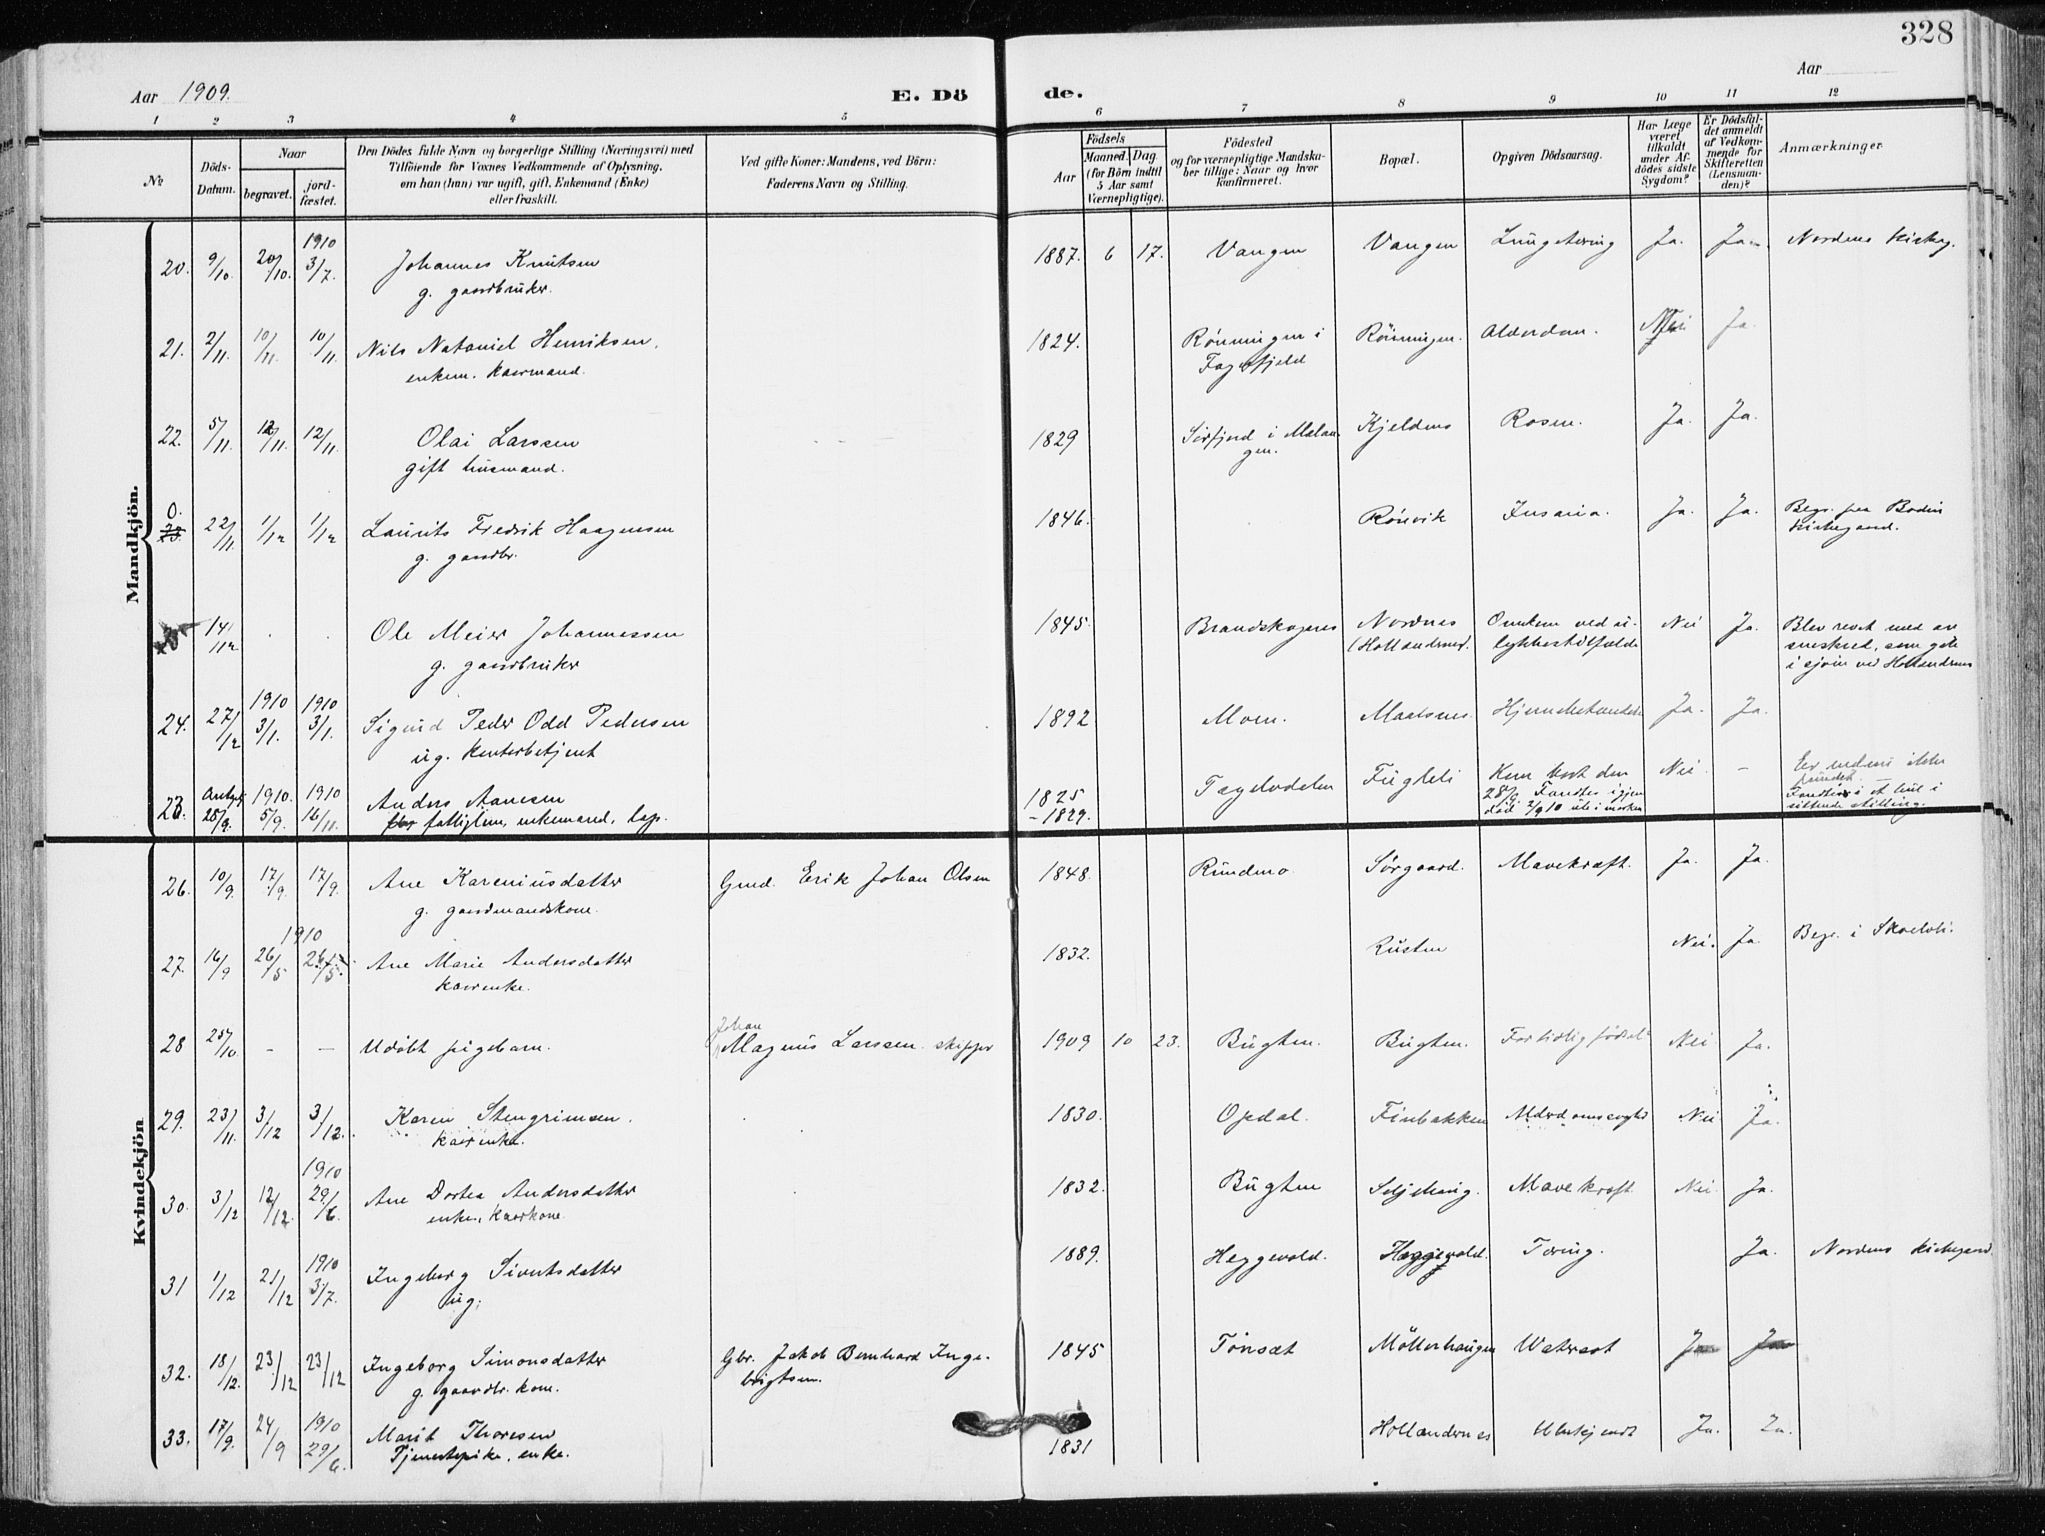 328
Aar 1909.
E. Dö
de.
Aar
1 2 3 4 5 6 7 8 9 10 11 12
No
Döds-
Datum.
Naar
begravet.
jord-
fæstet.
Den Dödes fulde Navn og borgerlige Stilling (Næringsvei) med
Tilföiende for Voxnes Vedkommende af Oplysning,
om han (hun) var ugift, gift, Enkemand (Enke)
eller fraskilt.
Ved gifte Koner: Mandens, ved Börn:
Faderens Navn og Stilling.
Födsels
Aar
Maaned. Dag.
(for Börn indtil
5 Aar samt
Værnepligtige).
Födested
og for værnepligtige Mandska-
ber tillige: Naar og hvor
konfirmeret.
Bopæl.
Opgiven Dödsaarsag.
Har Læge
været
tilkaldt
under Af-
dödes sidste
Sygdom?
Er Dödsfal-
det anmeldt
af Vedkom-
mende for
Skifteretten
(Lensman-
den)?
Anmærkninger.
Mandkjön.
20. 9/10. 20/10. 1910 3/7. Johannes Knutsen
g. gaardbruker.
1887. 6 17. Vangen Vangen Lungetæring Ja. Ja. Nordens kirkeg.
21. 2/11. 10/11. 10/11. Nils Nataniel Henriksen,
enkem. kaarmand.
1824. Rønningen i
Fagerfjeld
Rønningen. Alderdom. Nei Ja.
22. 5/11. 12/11. 12/11. Olai Larssen
gift husmand.
1829 Sørfjord i Malan-
gen.
Kjeldnes Rosen. Ja. Ja.
0.
23. 22/11. 1/12 1/12 Laurits Fredrik Haagensen
g. gaardbr.
1846. Rønvik Insania. Ja. Ja. Begr. paa Bodin
kirkegaard.
14/12 Ole Meier Johannessen
g. gaardbruker
1845. Brandskognes Nordnes
(Hollandernes).
Omkom ved u-
lykkestilfælde
Nei Ja. Blev revet med av
sneskred, som gik
i sjøen ved Hollandernes
24. 27/12 1910 3/1. 1910 3/1. Sigurd Peder Odd Pedersen
ug. kontorbetjent
1892 Moen. Maalsnes. Hjernebetændelse Ja. Ja.
23. Antagl. 25/9. 1910. 5/9. 1910 16/11. Anders Aanesen
fattiglem, enkemand, lap.
1825
- 1829.
Tagelvdalen Fugleli Kom bort den
25/9. Fandtes igjen
død 2/9 10 ute i marken
Nei - Er endnu ikke
fundet.
Fandtes i et hul i
sittende stilling.
Kvindekjön
26. 10/9. 17/9. 17/9. Ane Kareniusdatter
g. gaardmandskone.
Gmd. Erik Johan Olsen
1848. Rundmo. Sørgaard. Mavekræft. Ja. Ja.
27. 16/9 1910 26/5 26/5. Ane Marie Andersdatter
kaarenke.
1832. Rusten Nei. Ja. Begr. i Skoelvli.
28 25/10. - - Udøbt pigebarn.
Johan
Magnus Larssen. skipper
1909 10 23. Bugten. Bugten. For tidlig fødsel Nei Ja.
29. 23/11. 3/12 3/12. Karen Stengrimsen.
kaarenke.
1830. Opdal. Finbakken Alderdomssvaghd Nei Ja.
30. 3/12 12/12. 1910 29/6. Ane Dortea Andersdatter
enke, kaarkone.
1832. Bugten Seljehaug. Mavekræft. Nei. Ja.
31 1/12 21/12 1910 3/7. Ingeborg Sivertsdatter
ug.
1889. Heggevold. Heggevold. Tæring. Ja. Nordens kirkegaard.
32. 18/12. 23/12 23/12 Ingeborg Simonsdatter
g. gaardbr. kone.
Gbr. Jakob Bernhard Inge-
brigtsen.
1845 Tønsæt Møllerhaugen Watersot Ja Ja
33. 17/9. 24/9 1910 29/6. Marit Thoresen
Tjenestepike, enke.
1831 Hollandernes Ubekjendt Ja. Ja.